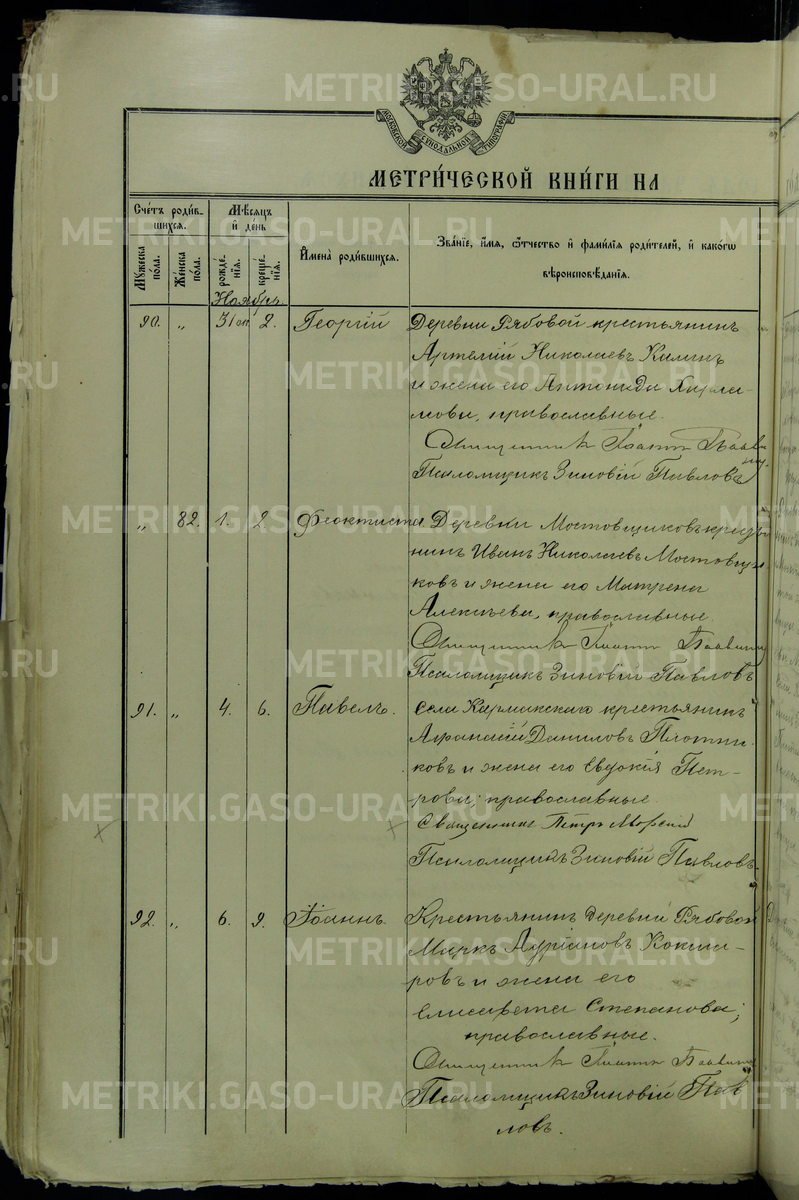 МОСКОВСКОЙ СѴНОДАЛЬНОЙ ТИПОГРАФІИ
МЕТРИ́ЧЕСКОЙ КНИ́ГИ НА
Сче́тъ роди́в-
шихся.
Мꙋ́жеска по́ла.
Же́нска по́ла.
Мѣ́сяцъ
и҆ де́нь
рожде́-
нїѧ.
креще́-
нїѧ.
И҆мена̀ роди́вшихся.
Зва́нїе, и҆́мѧ, ѻ҆́тчество и҆ фами́лїѧ роди́телей, и҆ како́гѡ
вѣроисповѣ́данїѧ.
Ноябрь.
90. „ 31 ок 2. Георгій Деревни Рябовой крестьянинъ
Артемій Николаевъ Калинъ
и жена его Антонида Харла-
мова, православные.
Священникъ
Псаломщикъ Зиновій Павловъ
„ 82. 1. 2 Феоктиста Деревни Мостовщиковъ крестья
нинъ Иванъ Николаевъ Мостовщи-
ковъ и жена его Матрена
Алексѣева, православные.
Священникъ
Псаломщикъ Зиновій Павловъ
91. „ 4. 6. Павелъ. Села Кармакскаго крестьянинъ
Афанасій Даниловъ Плотни-
ковъ и жена его Евдокія Пет-
рова; православные.
Священникъ Петръ
Псаломщикъ Зиновій Павловъ.
92. „ 6. 9. Іоаннъ. Крестьянинъ деревни Рябовой
Маркъ Адріановъ Кокша-
ровъ и жена его
Елисавета Степанова;
православные.
Священникъ
Псаломщикъ Зиновій Пав
ловъ.
METRIKI.GASO-URAL.RU